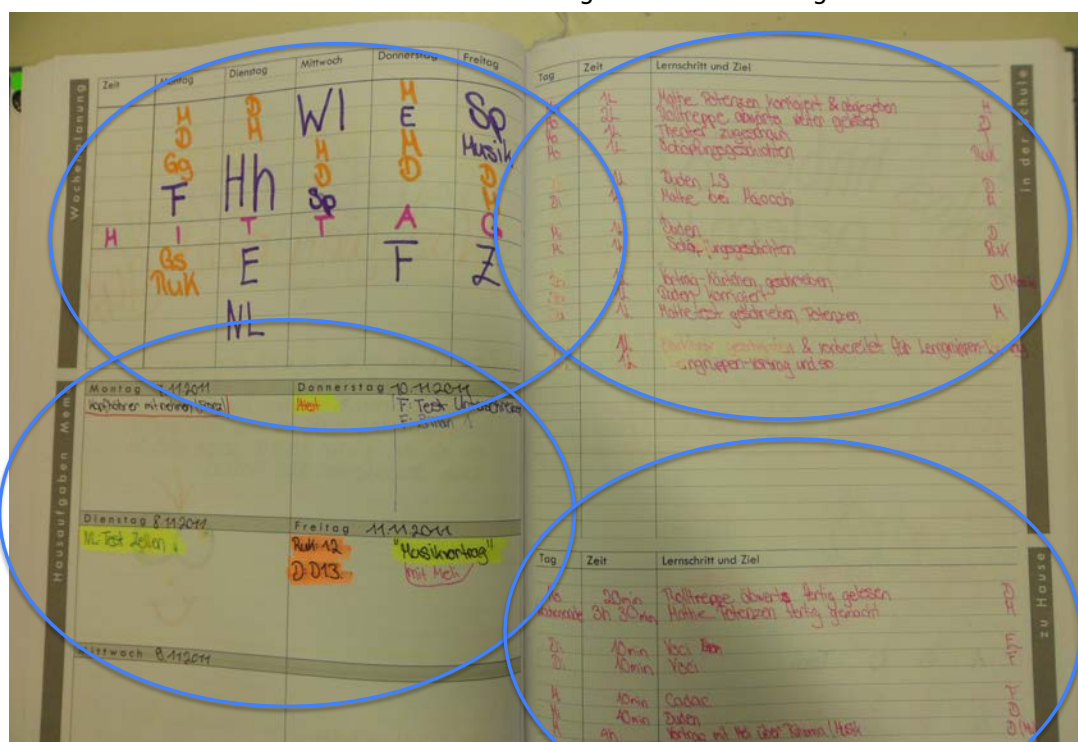 Wochenplanung
Zeit Montag Dienstag Mittwoch Donnerstag Freitag
M D WL M Sp
D M E Musik
Gg Hh M M D
F D D M
Sp
M I T T A G
Gs E F Z
RuK
NL
Hausaufgaben Memo
Montag 7.11.2011
Kopfhörer mitnehmen (Franz)
Donnerstag 10.11.2011
F: Test
Dienstag 8.11.2011
NL: Test Zellen
Freitag 11.11.2011
RuK: 12
D: D13.
"Musikvortrag"
mit Meli
Mittwoch 9.11.2011
in der Schule
Tag Zeit Lernschritt und Ziel
1L Mathe Potenzen korrigiert & abgegeben M
Mo 2L Rolltreppe abwärts weiter gelesen D
Mo 1L Theater zugeschaut
Mo 1L Schöpfungsgeschichten RuK
1L Duden LS D
Di 1L Mathe bei M
1L Duden D
M 1L Schöpfungsgeschichten RuK
1L Vortrag-Kärtchen geschrieben D
1L Duden korrigiert
1L Mathetest geschrieben Potenzen M
1L & vorbereitet für Lerngruppen-
1L und so
zu Hause
Tag Zeit Lernschritt und Ziel
Mo 20min Rolltreppe abwärts fertig gelesen D
Wochenende 3h 30min Mathe Potenzen fertig gemacht M
Di 10min Voci E
Di 10min Voci F
M 10min F
10min Duden D
Vortrag mit Meli über